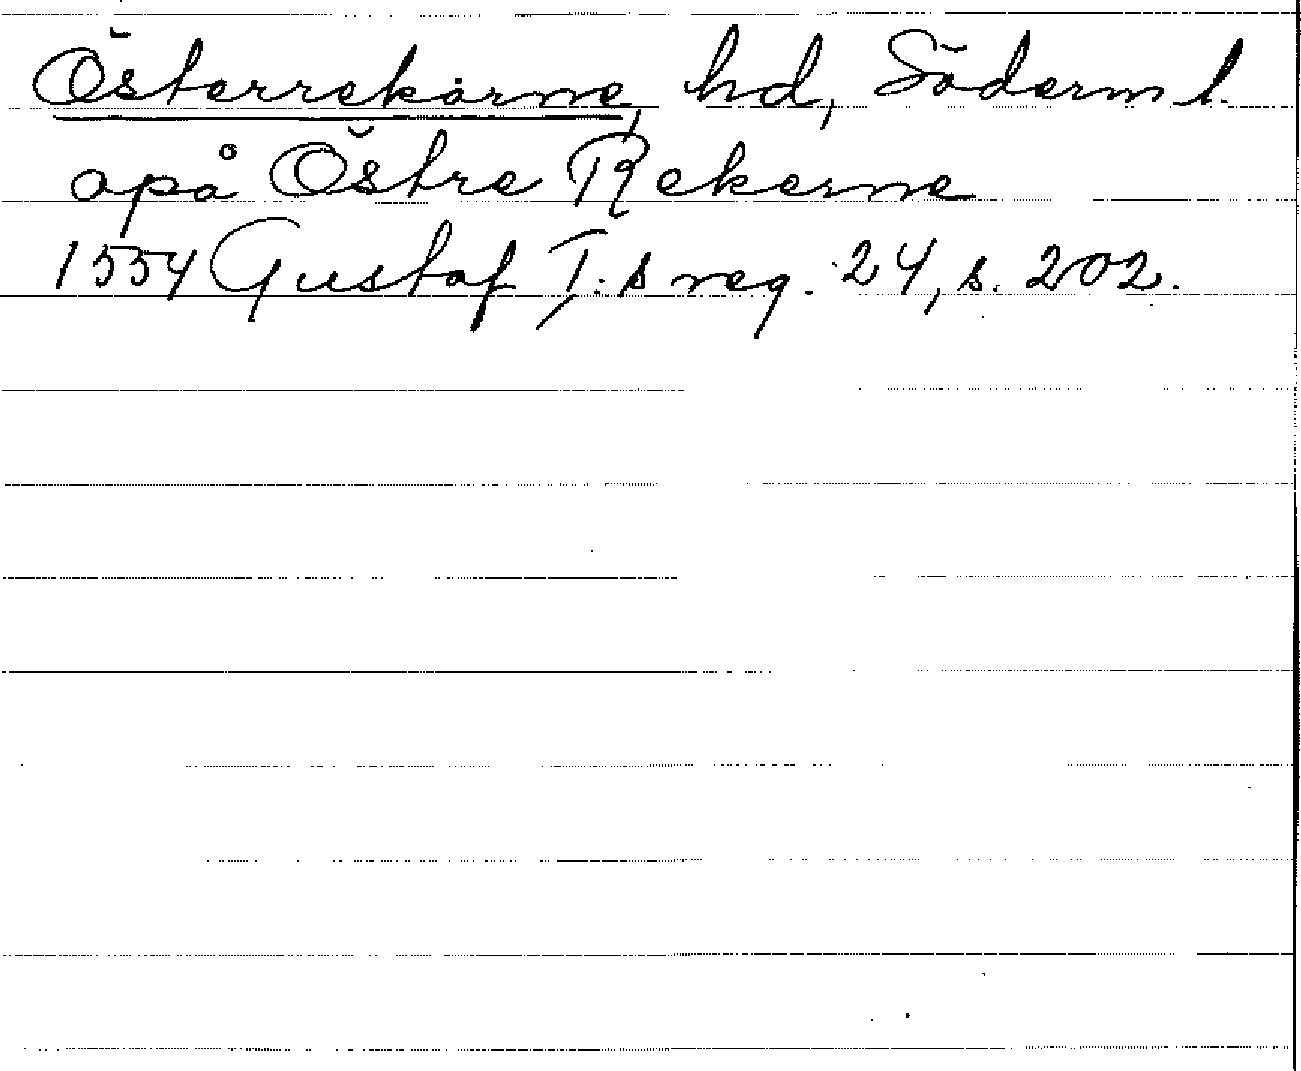 Österrekarne, hd, Söderml.
opå Östre Rekerne
1554 Gustaf I:s reg. 24, s. 202.